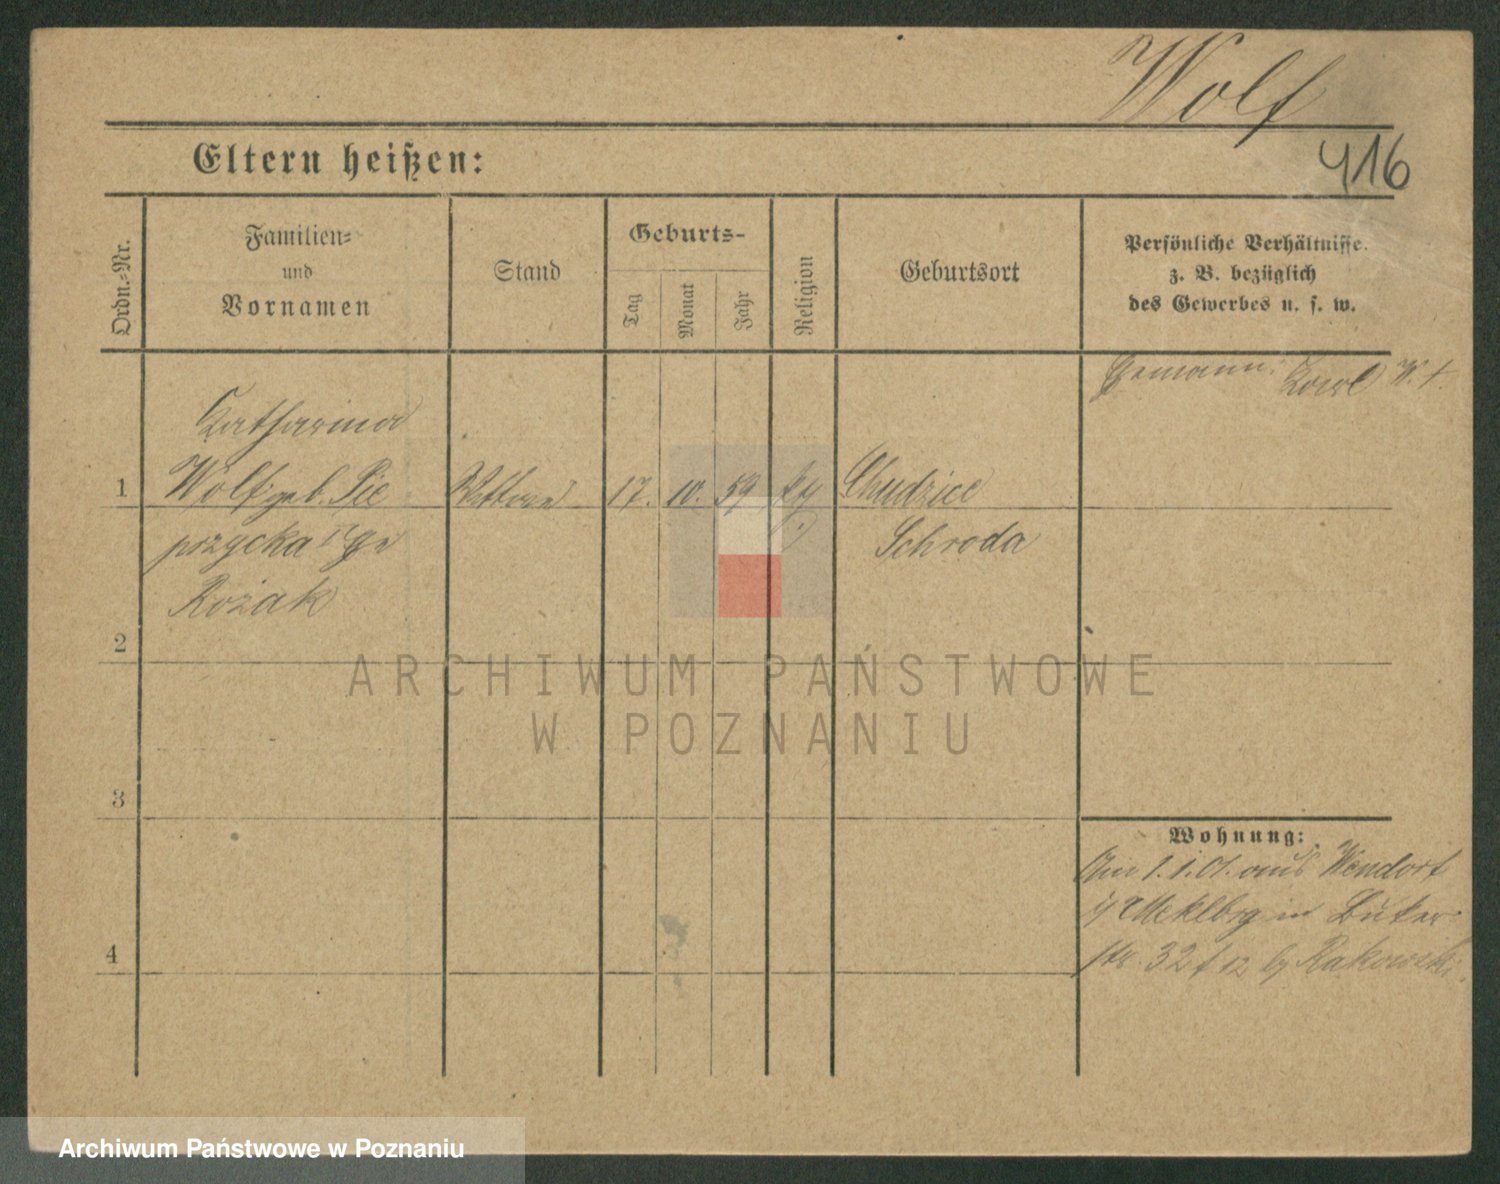 Wolf
416
Eltern heißen:
Ordn.-Nr.
Familien-
und
Vornamen
Stand
Geburts-
Tag
Monat
Jahr
Religion
Geburtsort
Persönliche Verhältnisse.
z. B. bezüglich
des Gewerbes u. s. w.
Katharina
1 Wolf geb. Pie
przycka
Rożak
17. 10. 59
Chudzice
Schroda
2
3
4
Wohnung:
Am 1.1.01. aus Wendorf
Meklbrg in
32 12 Rakowski
ARCHIWUM PAŃSTWOWE
W POZNANIU
Archiwum Państwowe w Poznaniu